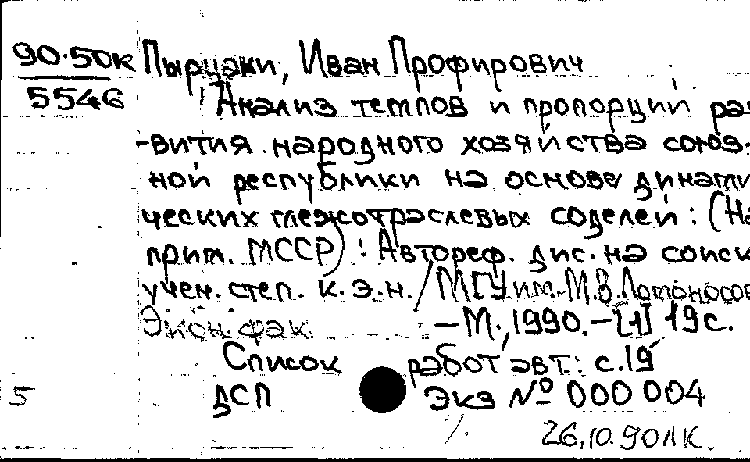 90·50к Пырцаки, Иван Профирович
5546 Анализ темпов и пропорций раз
-вития народного хозяйства союз-
ной республики на основе динами
ческих межотраслевых моделей: (На
прим. МССР): Автореф. дис. на соиск
учен. степ. к.э.н. / МГУ им. М.В.Ломоносов
Экон. фак. —М., 1990.—[1] 19 с.
Список работ авт: с.19
5 ДСП Экз № 000 004
26.10.90